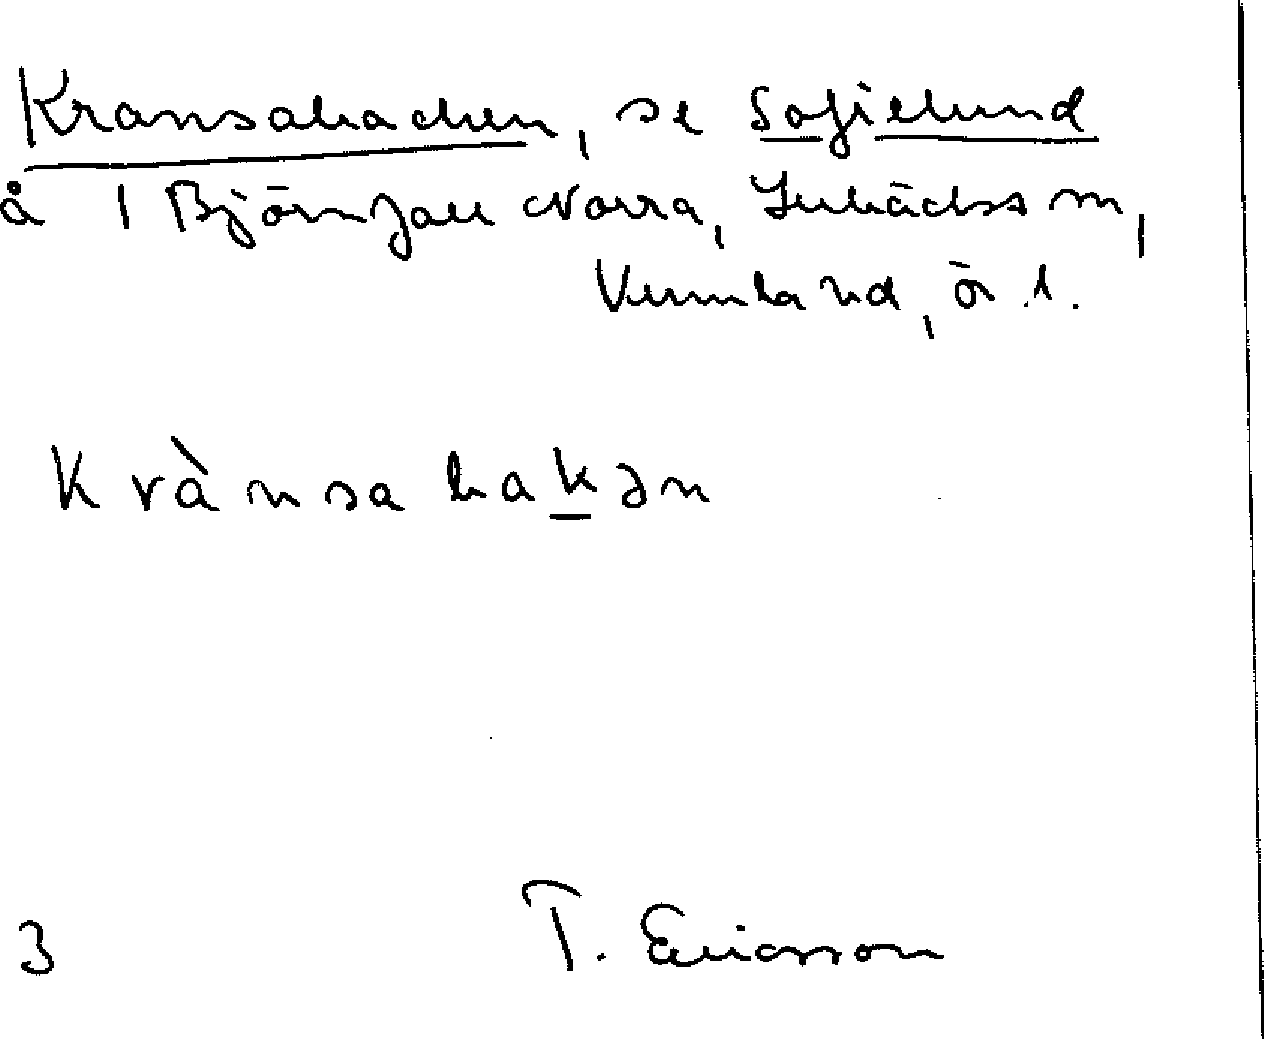 Kransabacken, se Sofielund
å 1 Björnfall Norra, Lerbäcks sn,
Kumla hd, Ör. l.
krànsabakən
3 T. Ericsson